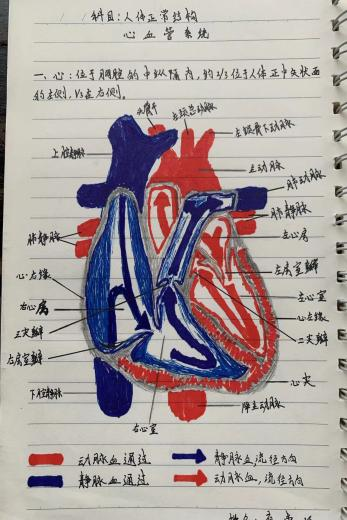 科目:人体正常结构
心血管系统
一、心:位于胸腔的中纵隔内,约2/3位于人体正中矢状面
的左侧,1/3在右侧。
头臂干
左颈总动脉
左锁骨下动脉
上腔静脉
主动脉
肺动脉
肺静脉
肺静脉
左心房
左房室瓣
心右缘
左心室
右心房
心左缘
三尖瓣
二尖瓣
右房室瓣
心尖
下腔静脉
降主动脉
右心室
动脉血通过
静脉血流径方向
静脉血通过
动脉血流径方向